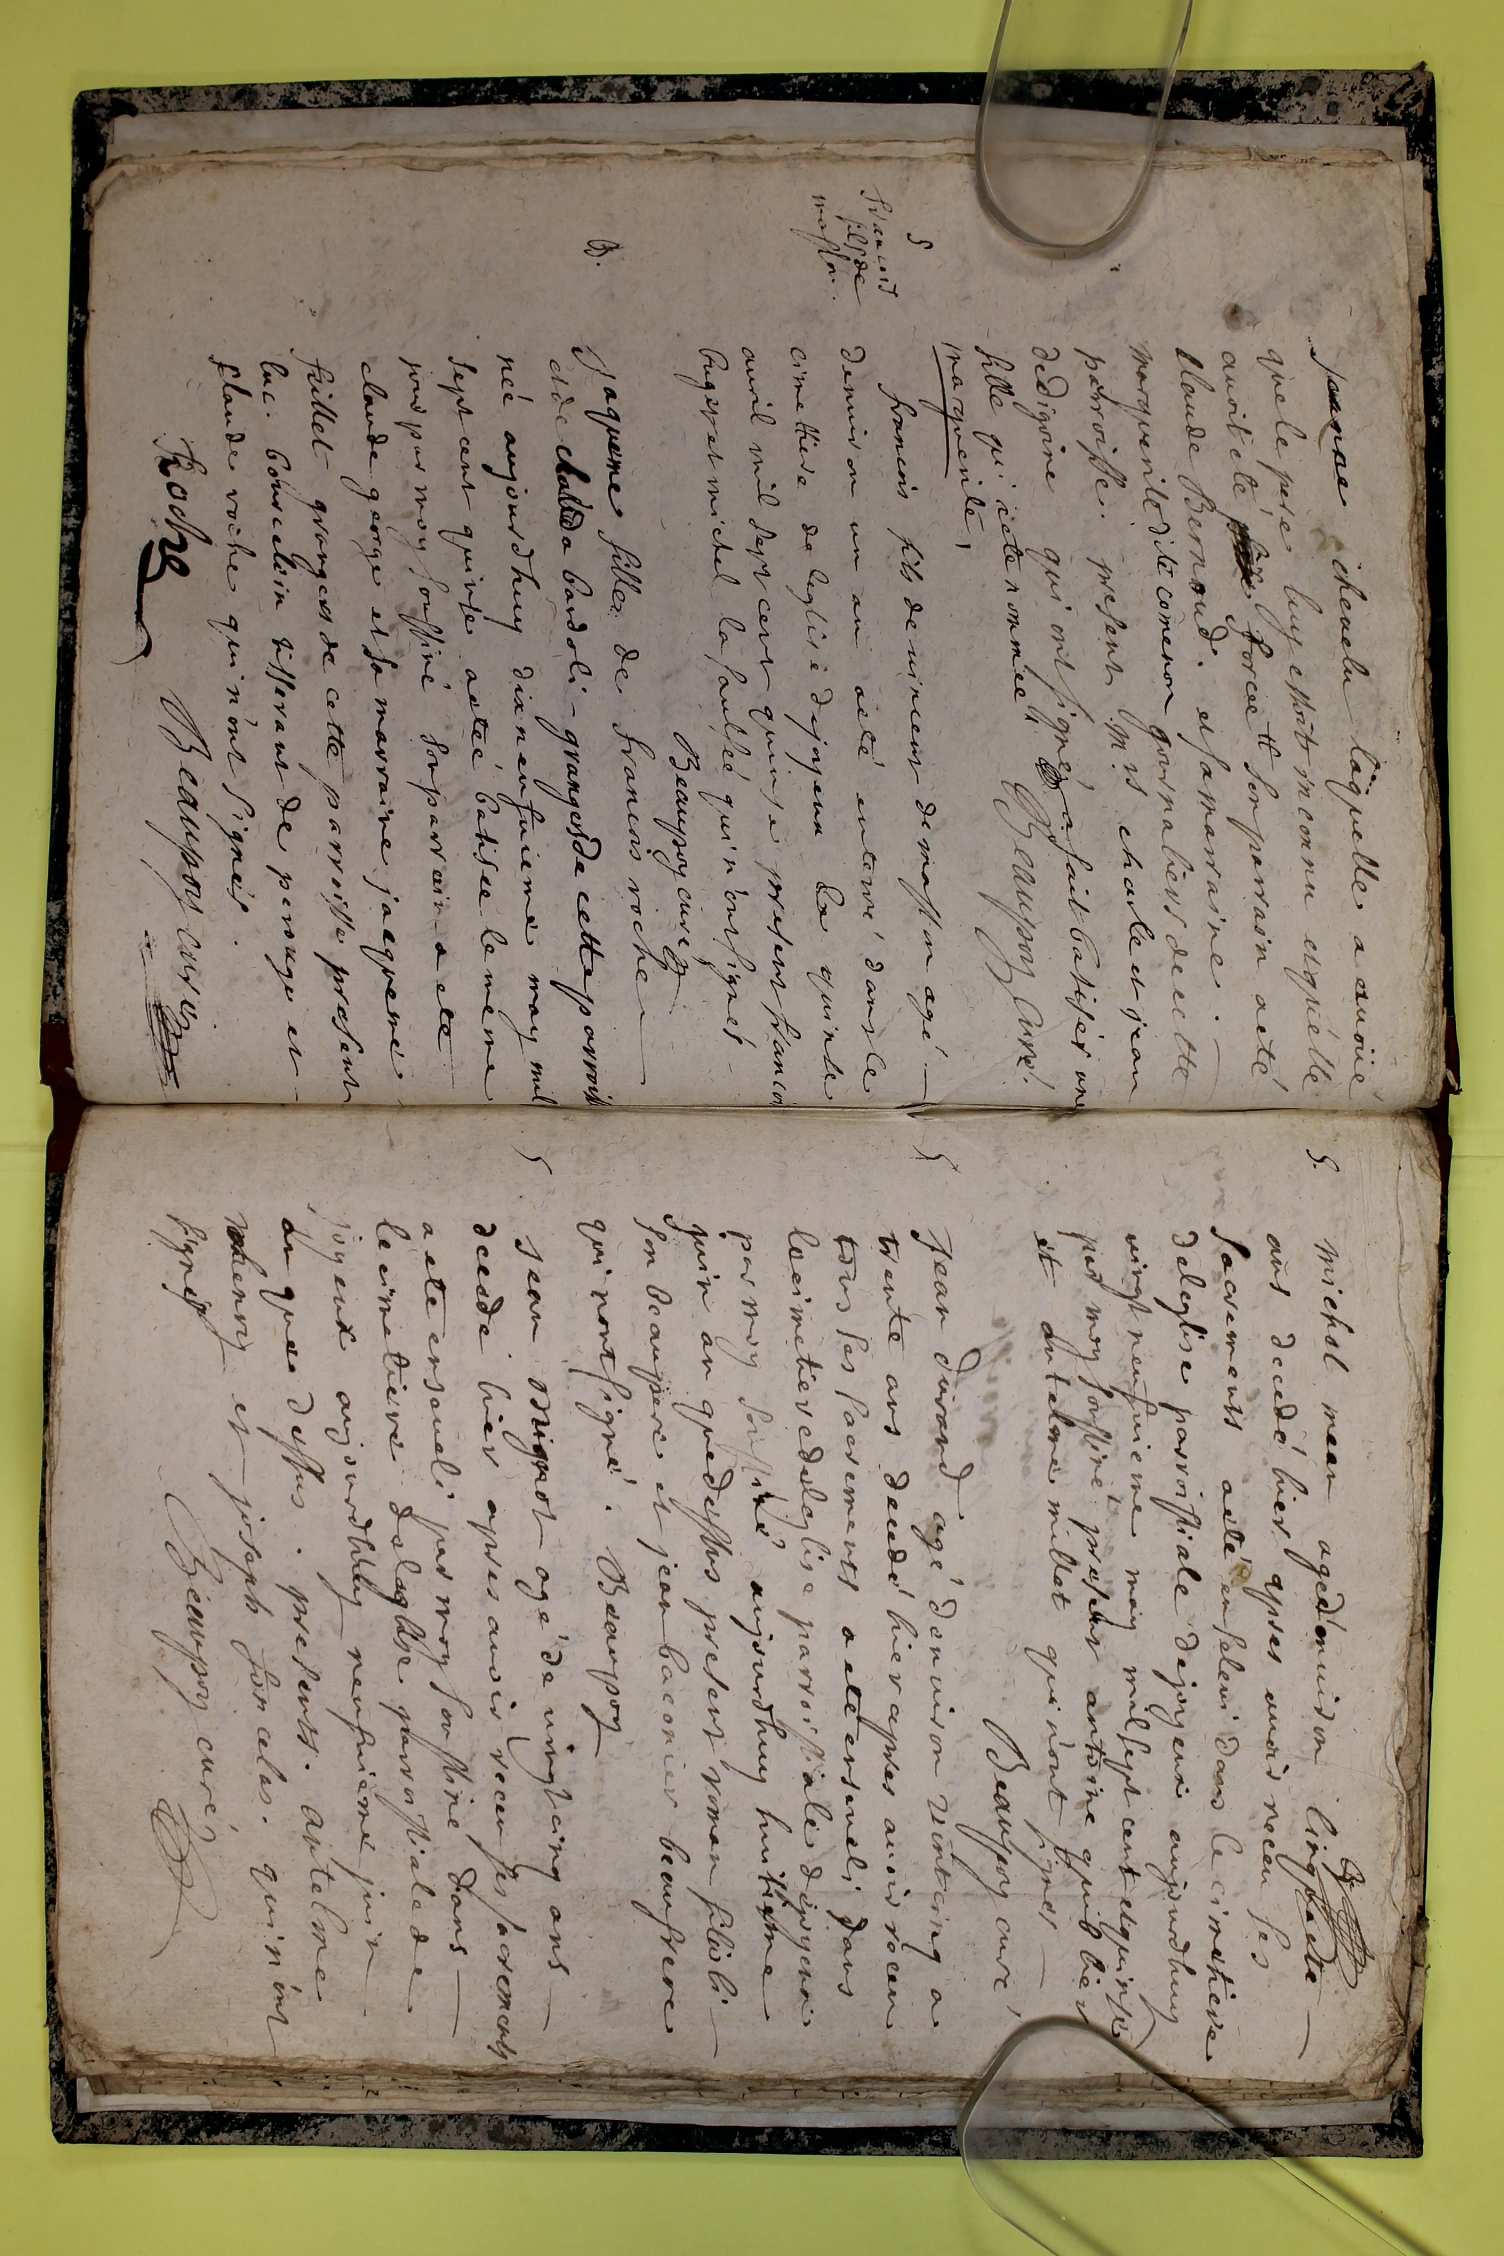 jeanne chevalu laquelle a avoüé
que le pere luy estoit inconnu et quelle
avoit eté forcee et son parrain a eté
Claude Bernoud. et sa marraine
marguerite dite comeron gournabiens de cette
parroisse. present m rs charle et jean
dedigoine qui ont signé a fait batiser une
fille qui a ete nommée
marguerite, Beaupoy curé
S
francois
fils de
masson.
francois fils de vincent de masson agé
denviron un an a eté enterré dans le
cimettiere de leglise de joyeux le quinse
avril mil sept cent quinse present francois
buget et michel la faulsée qui n'ont signés
Beaupoy curé
B.
Jaqueme fille de francois roche
et de clauda bardoli granger de cette parroisse
née aujourdhuy dix neufvieme may mil
sept cent quinse a eteé batisee le meme
jour par moy soussiné son parrain a ete
claude george et sa marraine jaqueme
fillet grangers de cette parroisse present
luc. bourcelin tisserant de perouge et
claude roche qui n'ont signés.
Roche Beaupoy curé
S.
michel mean agé denviron cinquante
ans decedé hier apres avoir receu ses
sacrements a eté enseveli dans le cimetiere
de leglise parroissiale de joyeux aujourdhuy
vingt neufvieme may mil sept cent et quinse
par moy soussiné present antoine guibber
et antelme millet qui n'ont signer
Beaupoy curé
S
Jean durand agé denviron vint cinq a
trente ans decedé hier apres avoir receu
tous ses sacrements a ete enseveli dans
le cimetiere de leglise parroissiale de joyeux
par moy soussiné aujourdhuy huitieme
juin an que dessus present roman filioli
son beaupere et jean baconier beaufrere
qui n'ont signé. Beaupoy
S
Jean mignot agé de vingt cinq ans
decede hier apres avoir receu ses sacrements
a ete enseveli par moy soussine dans
le cimetiere de leglise parroissiale de
joyeux aujourdhuy neufvieme juin
an que dessus. presents. antelme
heneny et joseph forcelas. qui n'ont
signés Beaupoy curé